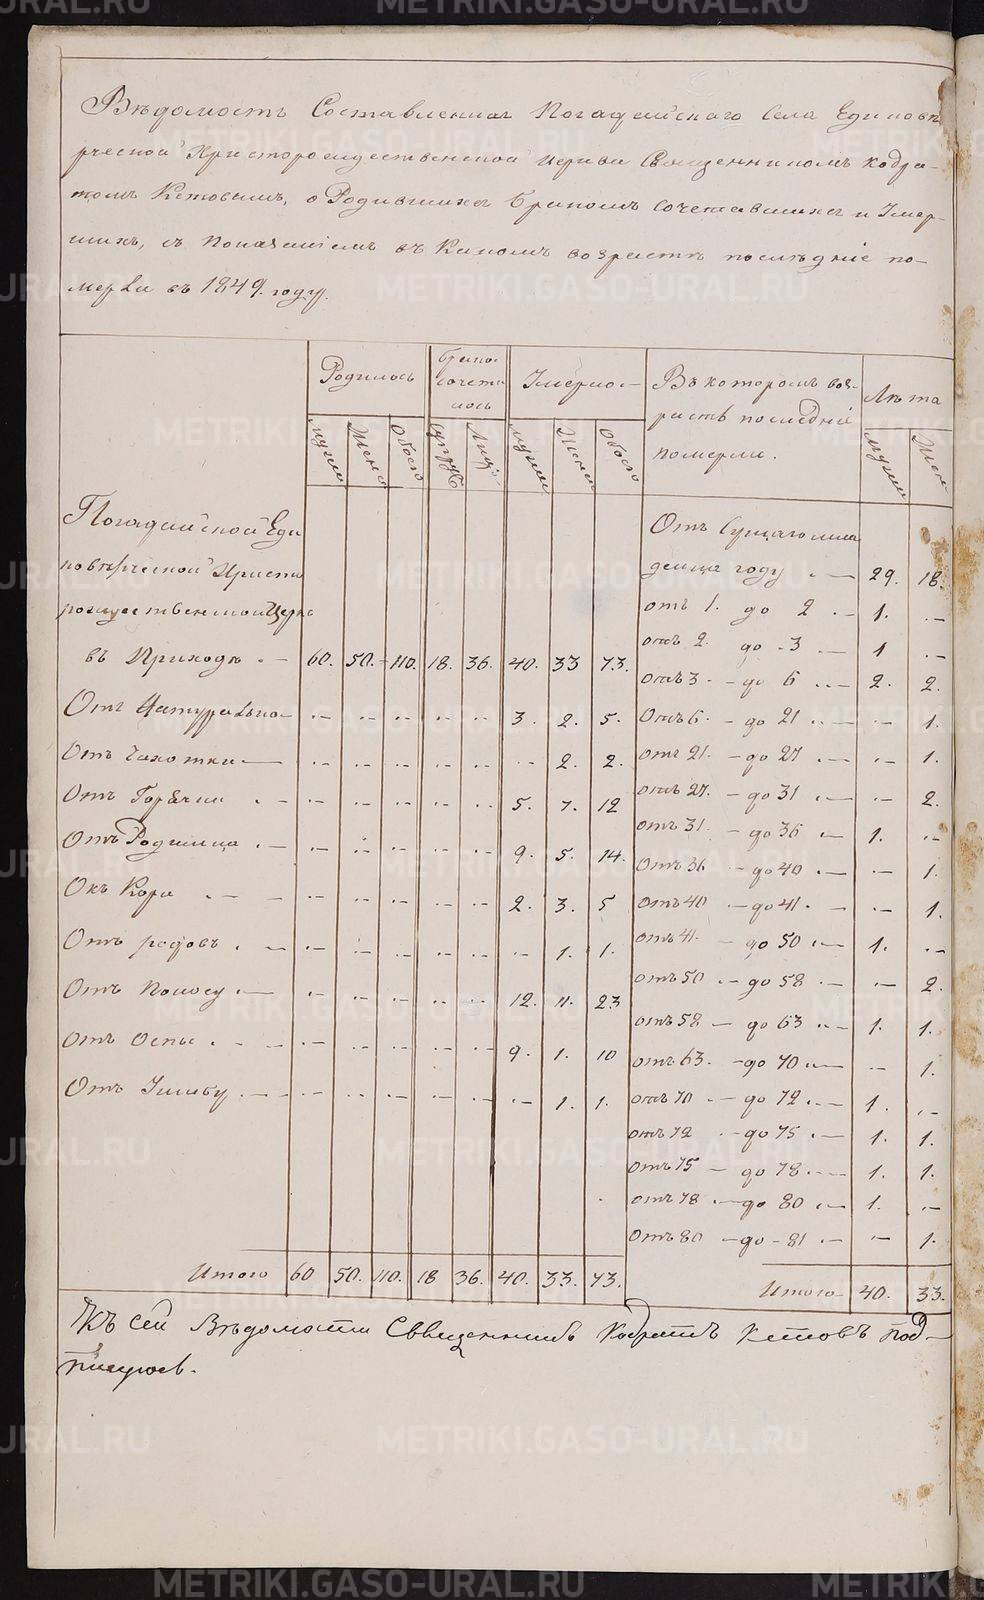 Вѣдомость Составленная Погадайскаго Села Единовѣ-
рческой Христорождественской церкви Священникомъ Кодра-
томъ Кетовымъ, о Родившихся Бракомъ сочетавшихся и Умер-
шихъ, съ Показаніемъ въ Какомъ возрастѣ послѣдніе по-
мерли въ 1849. году.
Родилось
Брако-
сочета
лось
Умерло
Въ которомъ воз-
растѣ последніе
померли.
Лѣта
мужеи
Жена
Обоего
супруж
Лицъ
мужеи
Жена
Обоего
мужеи
Жен
Погадайской Еди
новѣрческой Христо
рождественской Церкв
въ Приходѣ 60. 50. 110. 18. 36. 40. 33 73.
Отъ Натурально 3. 2. 5.
Отъ Чахотки 2. 2.
Отъ Горячки 5. 7. 12
Отъ Родимца 9. 5. 14.
Отъ Кори 2. 3. 5
Отъ родовъ 1. 1.
Отъ Поносу 12. 11. 23
Отъ Оспы 9. 1. 10
Отъ Ушибу 1. 1.
Итого 60 50. 110. 18 36. 40. 33. 73.
Отъ Сущаго мла
денца году 29. 18.
отъ 1. до 2 1.
отъ 2. до 3 1
отъ 3. до 6 2. 2.
Отъ 6. до 21 1.
отъ 21. до 27 1.
отъ 27. до 31 2.
отъ 31. до 36 1.
отъ 36 до 40 1.
отъ 40 до 41 1.
отъ 41. до 50 1.
отъ 50 до 58 2.
отъ 58 до 63 1. 1.
отъ 63. до 70 1.
отъ 70 до 72 1.
отъ 72 до 75 1. 1.
отъ 75 до 78 1. 1.
отъ 78 до 80 1.
отъ 80 до 81 1.
Итого 40. 33.
Къ сей Вѣдомости Священникъ Кодратъ Кетовъ под-
писуюсь.
METRIKI.GASO-URAL.RU